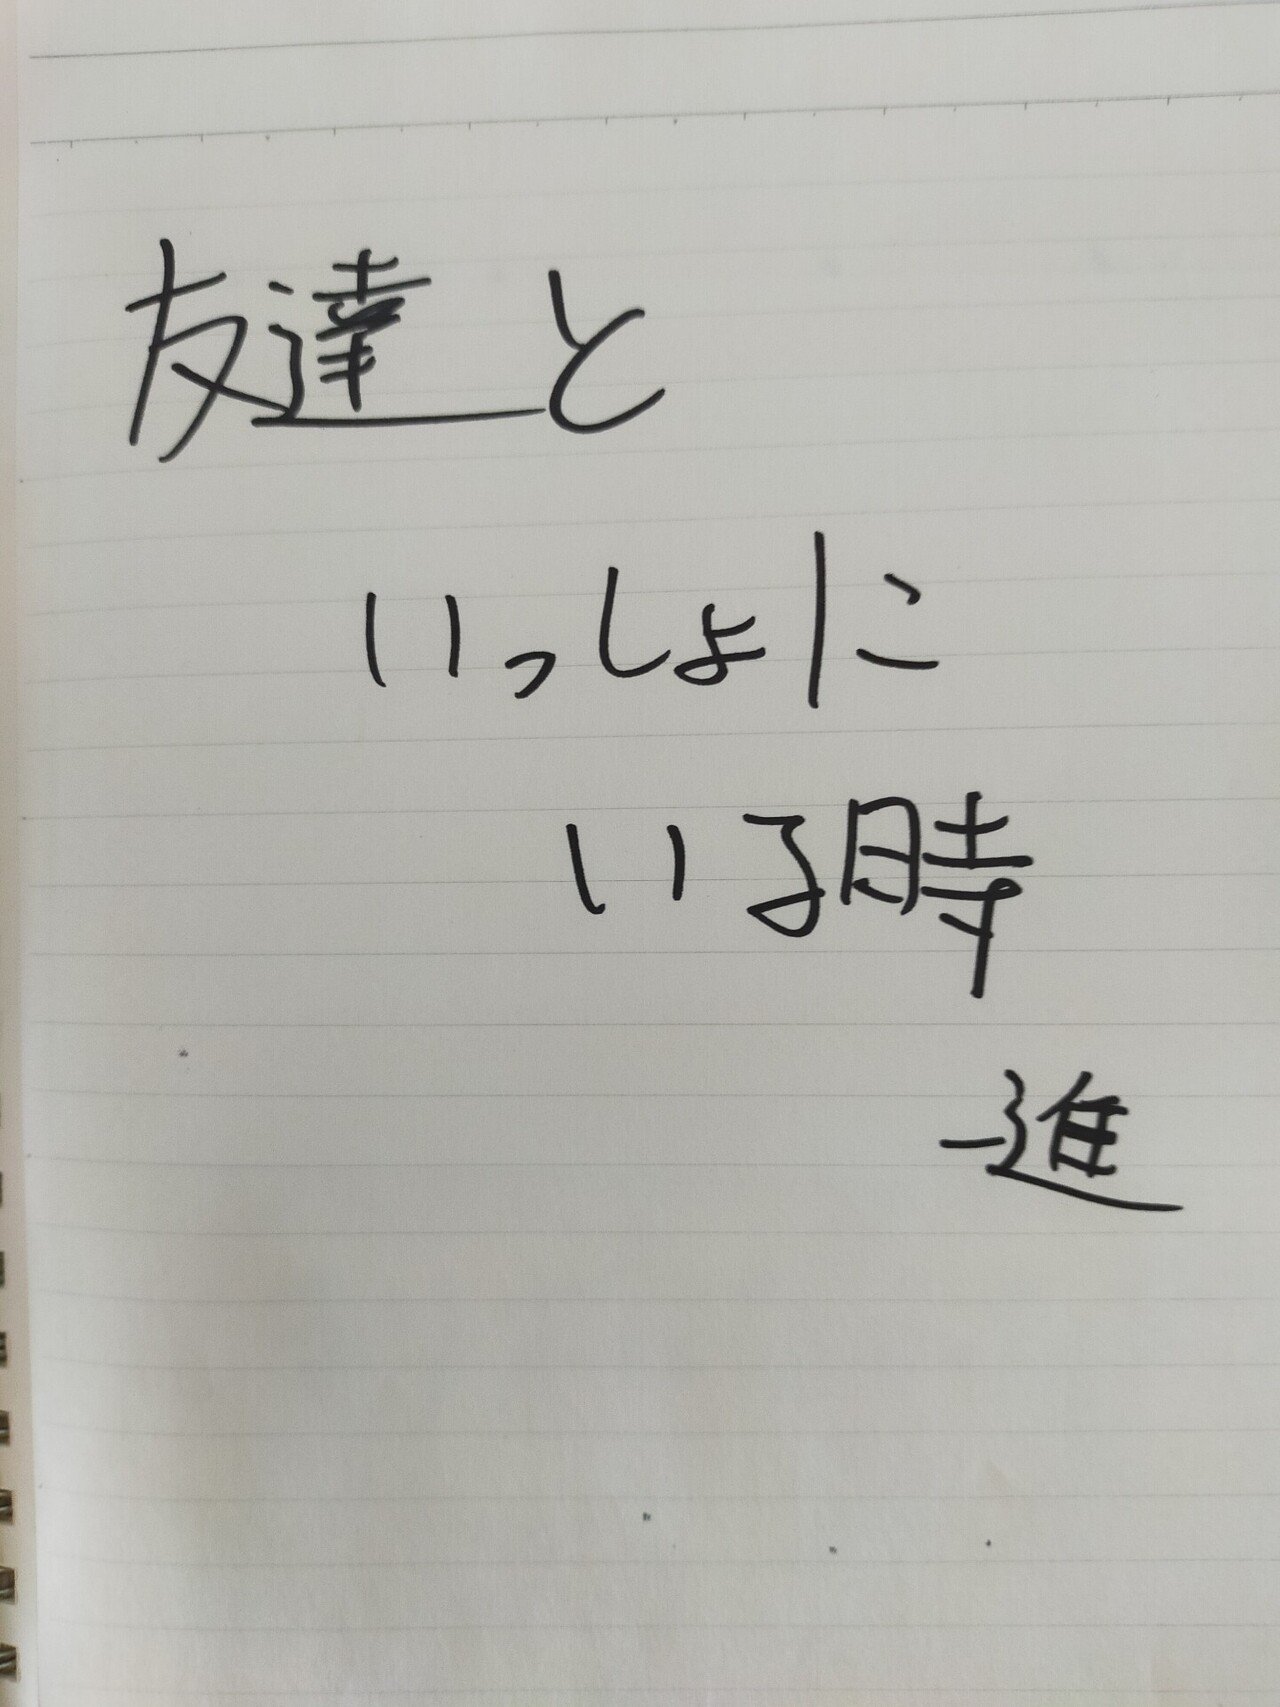 友達と
いっしょに
いる時
一進